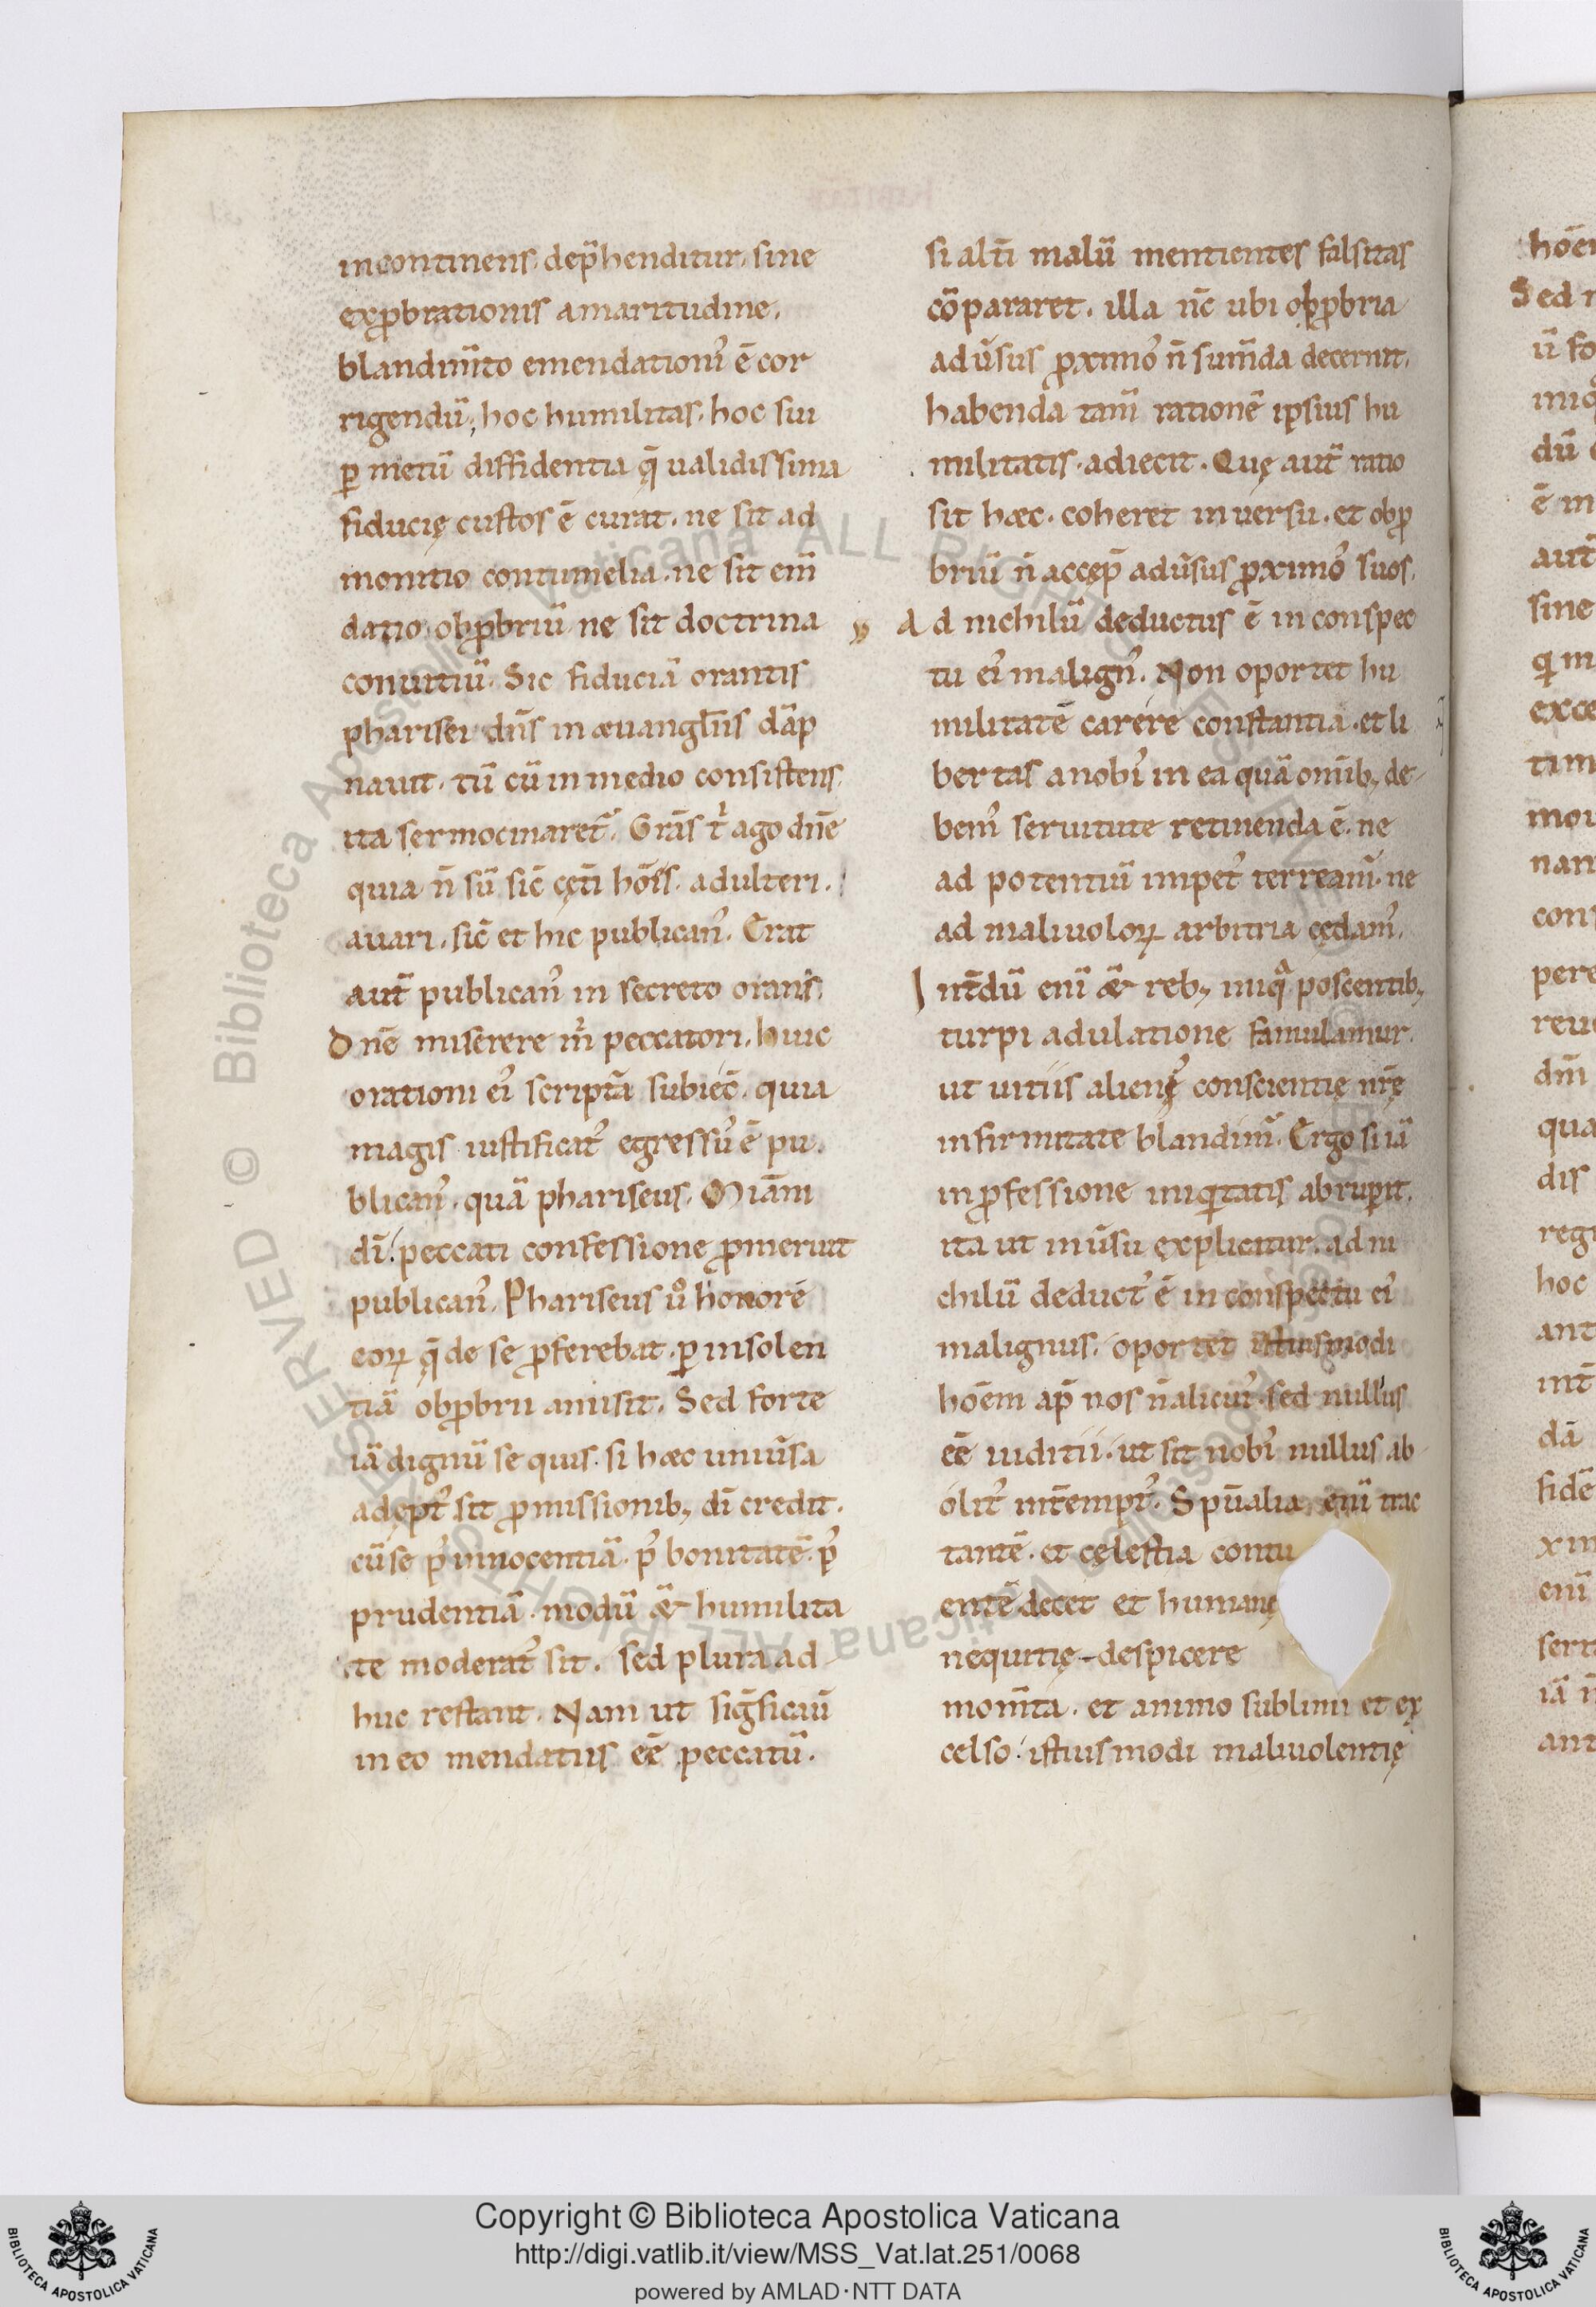 incontinens dep̄henditur. sine
exꝓbrationis amaritudine.
blandim̄to emendationiꝰ ē cor
rigendū; hoc humilitas. hoc sui
ꝑ metū diffidentia q̄ ualidissima
fiducię custos ē curat. ne sit ad
monitio contumelia. ne sit em̄
datio obꝓbriū ne sit doctrina
conuitiū. Sic fiduciā orantis
pharisei dn̄s in æuangliis dāp
nauit. tū cū in medio consistens.
ita sermocinaret᷑. Grās t̉ ago dn̄e
quia n̄ sū sic̄ cęti hōīs. adulteri.
auari. sic̄ et hic publicanꝰ. Erat
aut̄ publicanꝰ in secreto orans.
Dn̄e miserere m̉ peccatori. huic
orationi eiꝰ scriptā subiec̄. quia
magis iustificatꝰ egressuꝰ ē pu
blicanꝰ. quā phariseus. Miam̄
dī. peccati confessione ꝓmeruit
publicanꝰ. Phariseus uͦ honorē
eoꝝ q̄ de se ꝓferebat. ꝑ insolen
tiā obꝓbrii amisit. Sed forte
iā dignū se quis. si hæc uniūsa
adeptꝰ sit ꝓmissionibꝫ dī credit.
cū se pꝰ innocentiā. pꝰ bonitatē. pꝰ
prudentiā. modū & humilita
te moderatꝰ sit. sed plura ad
huc restant. Nam ut siḡficauꝰ
in eo mendatiis eē peccatū.
si alt̄i malū mentientes falsitas
cōpararet. illa nc̄ ubi obꝓbria
adūsus ꝓximoꝰ n̄ sum̄da decernit.
habenda tam̄ rationē ipsius hu
militatis. adiecit. Quę aut̄ ratio
sit hæc. coheret in uersu. et obꝓ
briū n̄ accęp̄ adūsus ꝓximoꝰ suos.
Ad nichilū deductus ē in conspec
tu eiꝰ malignꝰ. Non oportet hu
militatē carere constantia. et li
bertas a nobꝰ in ea quā om̄ibꝫ de
bemꝰ seruitute retinenda ē. ne
ad potentiū impetꝰ terreamꝰ. ne
ad maliuoloꝝ arbitria cędamꝰ.
Int̄dū enī & rebꝫ iniq̄ poscentibꝫ
turpi adulatione famulamur.
ut uitiis alienꝰ conscientię nr̄ę
infirmitate blandim᷑. Ergo si iā
in ꝓfessione iniq̇tatis abrupit.
ita ut in ūsu explicitur. ad ni
chilū deductꝰ ē in conspectu eiꝰ
malignus. oportet istiusmodi
hoēm ap̄ nos n̄ alicuiꝰ. sed nullius
eē iuditii. ut sit nobꝰ nullus ab
olitꝰ int̄emptꝰ. Spūalia enī trac
tantē. et cęlestia contu
entē decet et humanę
nequitię despicere
mom̄ta. et animo sublimi et ex
celso. istiusmodi maliuolentię
hoēm
Sed
ū fo
iniq
dū
ē in
aut̄
sine
exce
tim
mou
nam
con
pere
reu
dm̄
qua
dis
regi
hoc
ant
int̄
dā
fidē
xim
enī
seru
iā n
ant
Copyright © Biblioteca Apostolica Vaticana
http://digi.vatlib.it/view/MSS_Vat.lat.251/0068
powered by AMLAD·NTT DATA